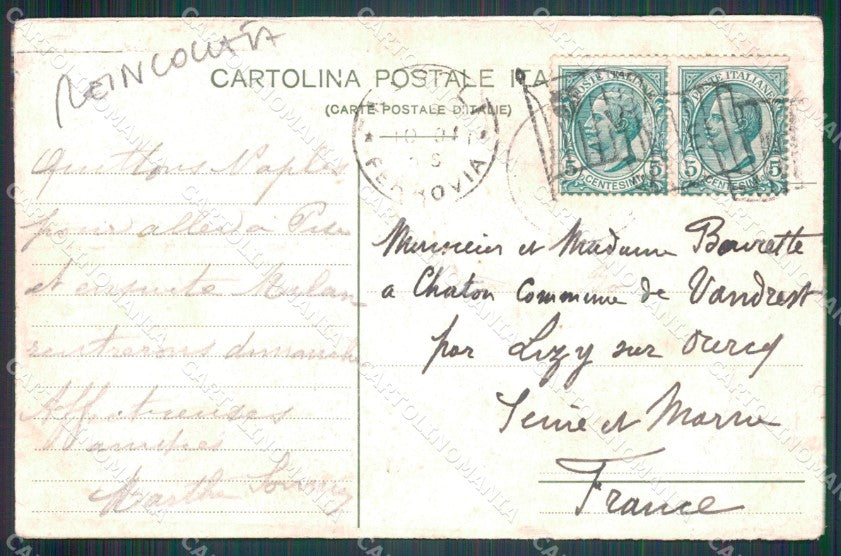 REINCOLLATA
CARTOLINA POSTALE ITA
(CARTE POSTALE D'ITALIE)
FERROVIA
POSTE ITALIANE
5 CENTESIMI 5
POSTE ITALIANE
5 CENTESIMI 5
Quittons Naples
pour aller à Pise
et ensuite Milan
rentrerons dimanche
Affectueuses
amitiés
Marthe
Monsieur et Madame Bourette
a Chaton Commune de Vandrest
par Lizy sur Ourcq
Seine et Marne
France
CARTOLINOMANIA